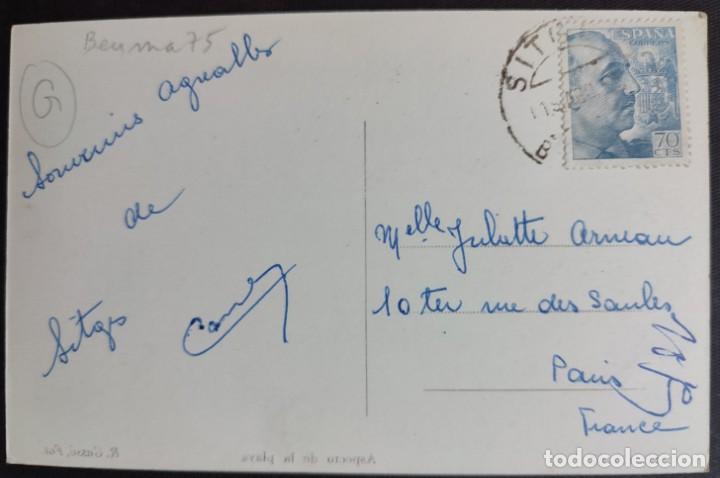 Beuma 75
G
Souvenirs agreables
de
Sitges
SIT
ESPAÑA
CORREOS
70
CTS
Melle Juliette Arneau
10 ter rue des Saules
Paris
France
Aspecto de la playa
todocoleccion.net